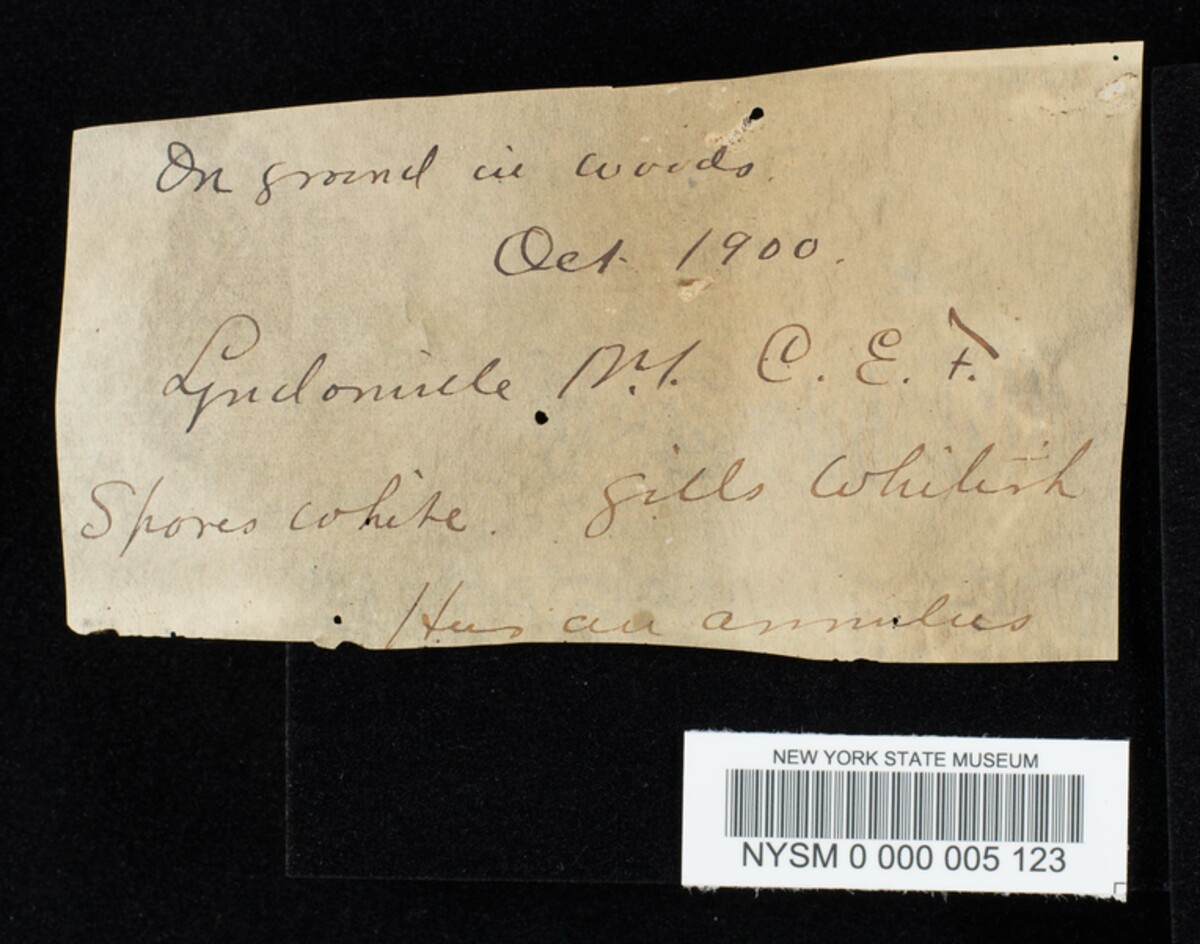 On ground in woods.
Oct. 1900.
Lyndonville N.Y. C. E. F.
Spores white. gills whitish
Has an annulus
NEW YORK STATE MUSEUM
NYSM 0 000 005 123